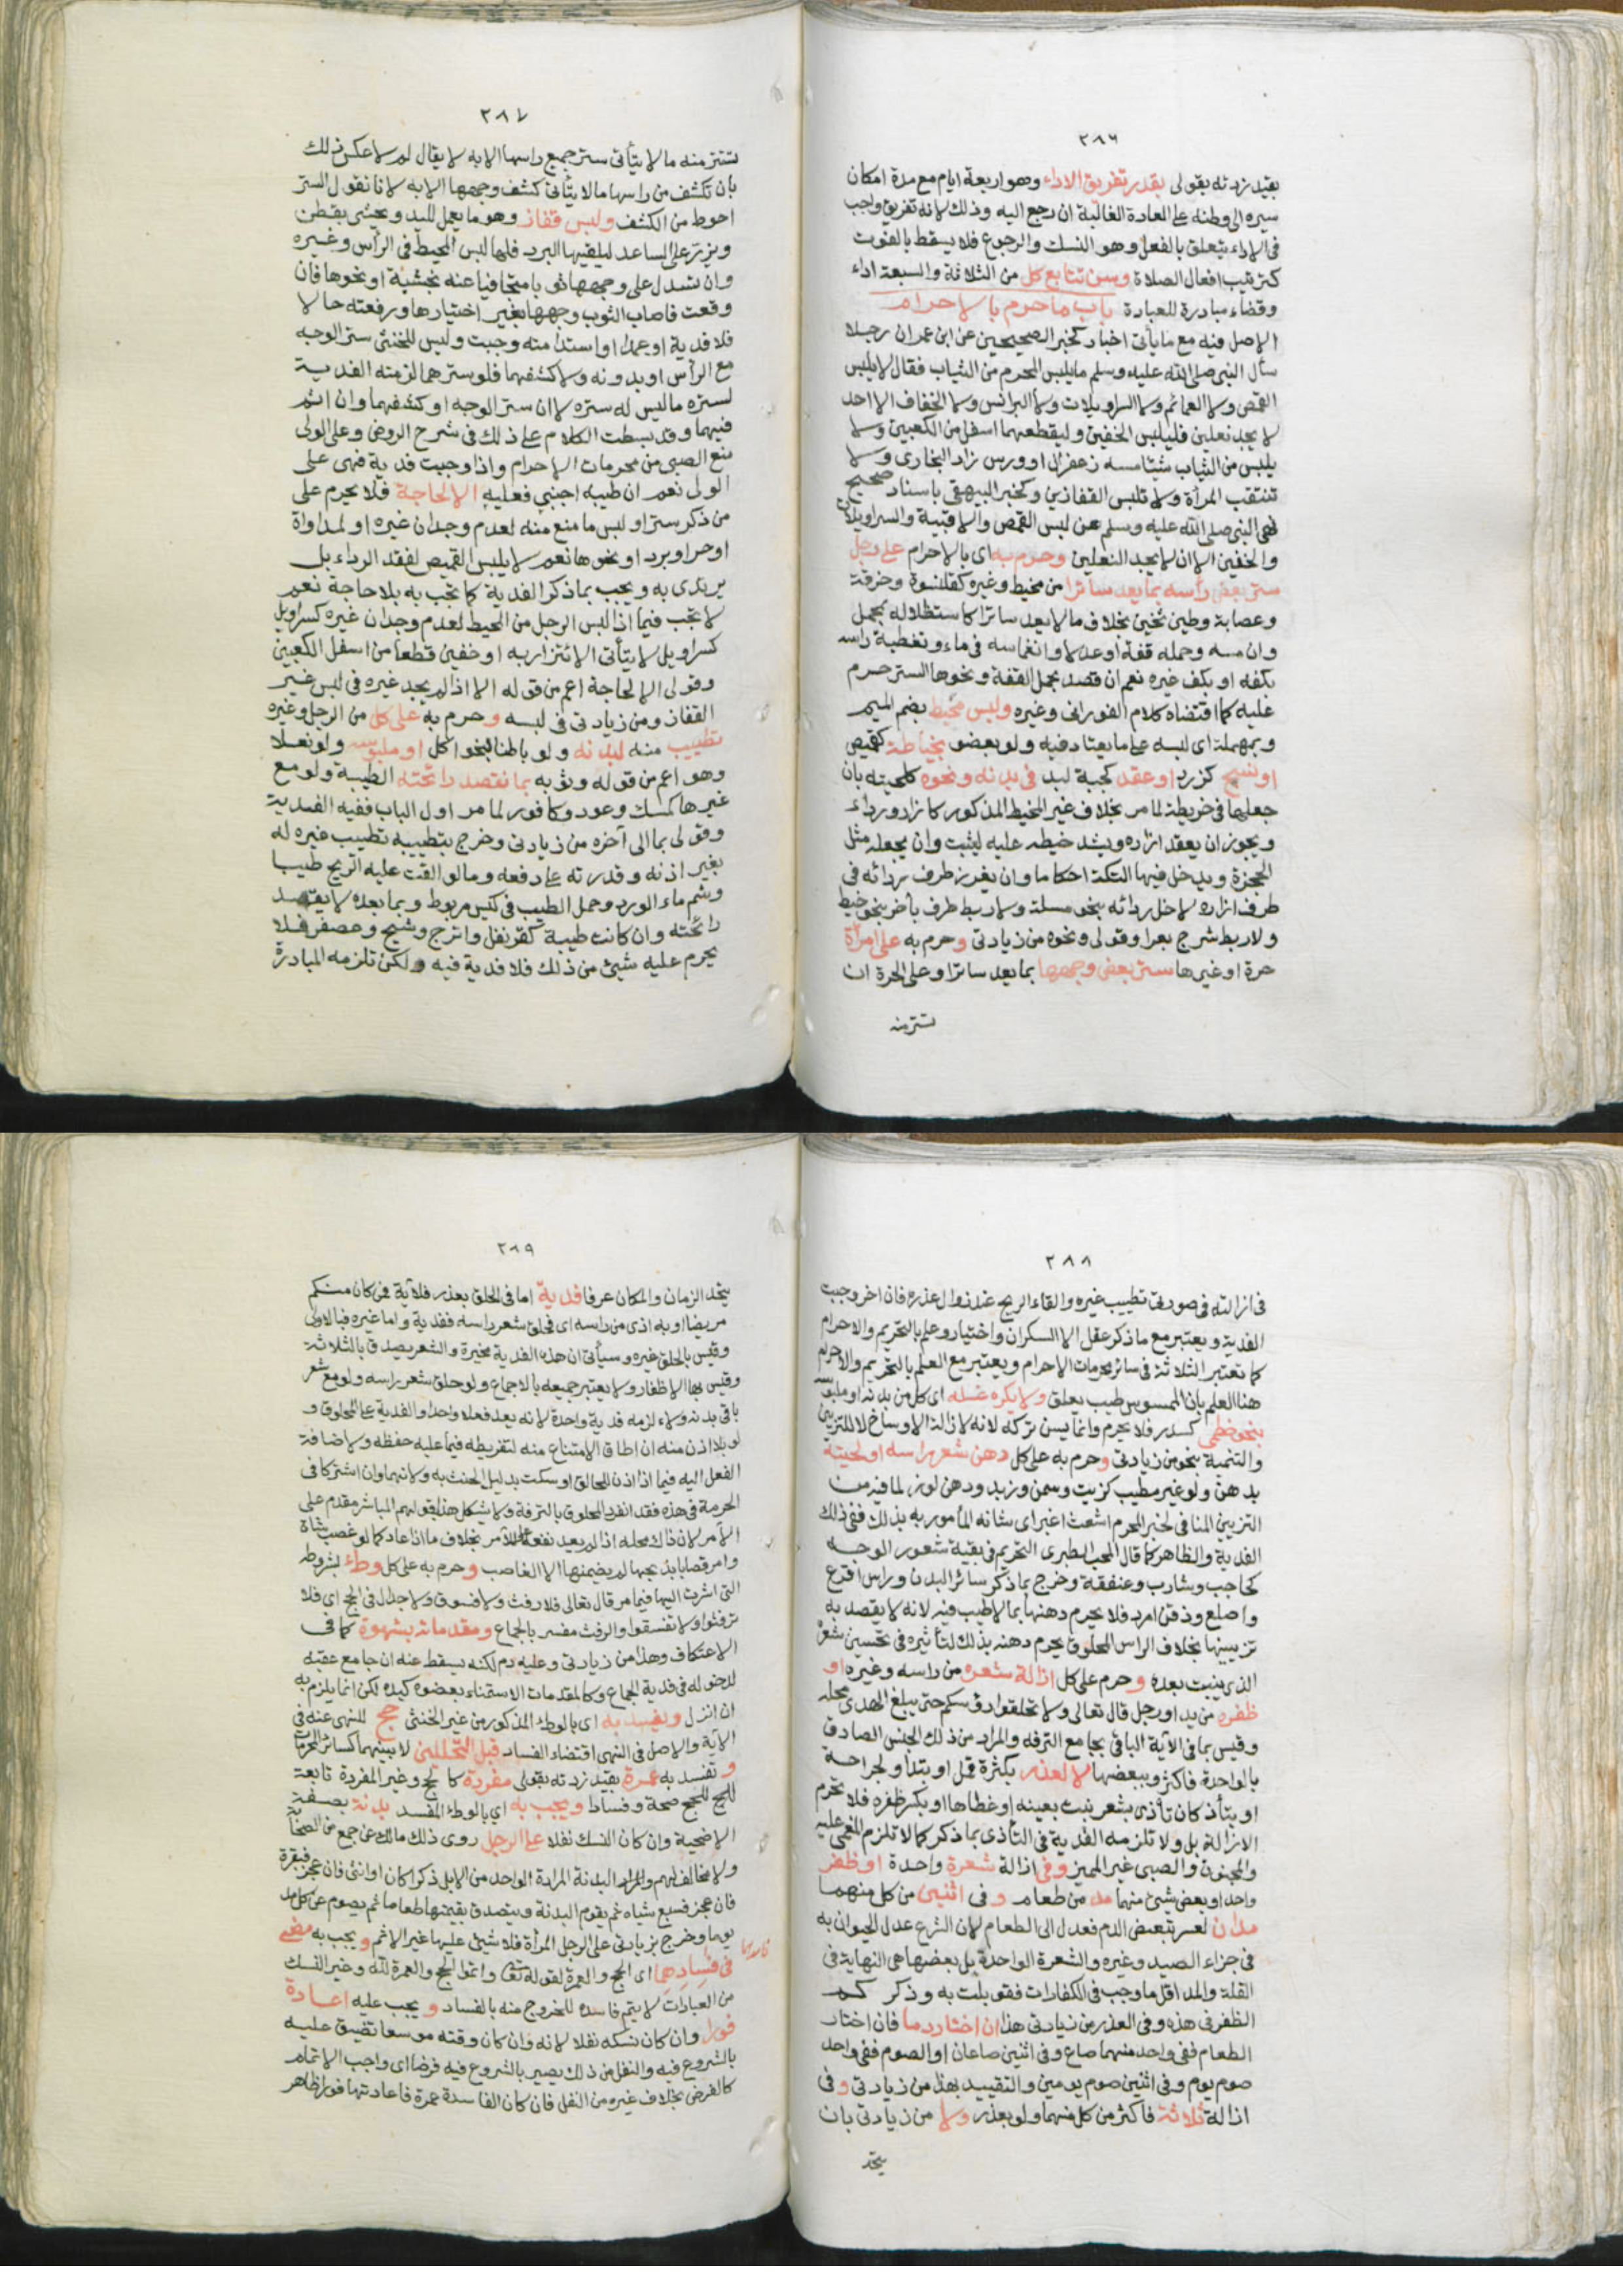 ٢٨٦
بقيد زدته بقولى بقدر تفريق الاداء وهو اربعة ايام مع مدة امكان
سيره الى وطنه على العادة الغالبة ان رجع اليه وذلك لانه تفريق واجب
فى الاداء يتعلق بالفعل وهو النسك والرجوع فلا يسقط بالفوت
كترتيب افعال الصلاة وسن تتابع كل من الثلاثة والسبعة اداء
وقضاء مبادرة للعبادة باب ما حرم بالاحرام
الاصل فيه مع ما يأتى اخبار كخبر الصحيحين عن ابن عمر ان رجلا
سأل النبى صلى الله عليه وسلم ما يلبس المحرم من الثياب فقال لا يلبس
القمص ولا العمائم ولا السراويلات ولا البرانس ولا الخفاف الا احد
لا يجد نعلين فليلبس الخفين وليقطعهما اسفل من الكعبين ولا
يلبس من الثياب شيئا مسه زعفران او ورس زاد البخارى ولا
تنتقب المرأة ولا تلبس القفازين وكخبر البيهقى باسناد صحيح
نهى النبى صلى الله عليه وسلم عن لبس القمص والاقبية والسراويلات
والخفين الا ان لا يجد النعلين وحرم به اى بالاحرام على رجل
ستر بعض رأسه بما يعد ساترا من مخيط وغيره كقلنسوة وخرقة
وعصابة وطين ثخين بخلاف ما لا يعد ساترا كاستظلاله بمحمل
وان مسه وحمله قفة او عدلا وانغماسه فى ماء وتغطية راسه
بكفه او بكف غيره نعم ان قصد بحمل القفة ونحوها الستر حرم
عليه كما اقتضاه كلام الفورانى وغيره ولبس محيط بضم الميم
وبمهملة اى لبسه على ما يعتاد فيه ولو بعضو بخياطة كقميص
او نسج كزرد او عقد كجبة لبد فى بدنه ونحوه كلحيته بان
جعلها فى خريطة لما مر بخلاف غير المحيط المذكور كازار ورداء
ويجوز ان يعقد ازاره ويشد خيطه عليه ليثبت وان يجعله مثل
الحجزة ويدخل فيها التكة احكاما وان يغرز طرف ردائه فى
طرف ازاره لا خل ردائه بنحو مسلة ولا ربط طرف بآخر بنحو خيط
ولا ربط شرج بعرا وقولى ونحوه من زيادتى وحرم به على امرأة
حرة او غيرها ستر بعض وجهها بما يعد ساترا وعلى الحرة ان
تستر منه
٢٨٧
تستر منه ما لا يتأتى ستر جميع راسها الا به لا يقال لم لا عكس ذلك
بان تكشف من راسها ما لا يتأتى كشف وجهها الا به لانا نقول الستر
احوط من الكشف ولبس قفاز وهو ما يعمل لليد ويحشى بقطن
ويزر على الساعد ليقيها البرد فلها لبس المخيط فى الرأس وغيره
وان تسدل على وجهها ثوبا متجافيا عنه بخشبة او نحوها فان
وقعت فاصاب الثوب وجهها بغير اختيارها ورفعته حالا
فلا فدية او عمدا او استدامته وجبت وليس للخنثى ستر الوجه
مع الرأس او بدونه ولا كشفهما فلو سترهما لزمته الفدية
لستره ما ليس له ستره لا ان ستر الوجه او كشفهما وان اثم
فيهما وقد بسطت الكلام على ذلك فى شرح الروض وعلى الولى
منع الصبى من محرمات الاحرام واذا وجبت فدية فهى على
الولى نعم ان طيبه اجنبى فعليه الا لحاجة فلا يحرم على
من ذكر ستر او لبس ما منع منه لعدم وجدان غيره او لمداواة
او حر او برد او نحوها نعم لا يلبس القميص لفقد الرداء بل
يرتدى به ويجب بما ذكر الفدية كما تجب به بلا حاجة نعم
لا تجب فيما اذا لبس الرجل من المحيط لعدم وجدان غيره كسراويل
كسراويل لا يتأتى الاتزار به او خفين قطعا من اسفل الكعبين
وقولى الا لحاجة اعم من قوله الا اذا لم يجد غيره فى لبس غير
القفاز ومن زيادتى فى لبسه وحرم به على كل من الرجل وغيره
تطييب منه لبدنه ولو باطنا بنحو اكل او ملبوسه ولو نعلا
وهو اعم من قوله وثوبه بما تقصد رائحته الطيبة ولو مع
غيرها كمسك وعود وكافور لما مر اول الباب ففيه الفدية
وقولى بما الى آخره من زيادتى وخرج بتطييبه تطييب غيره له
بغير اذنه وقدرته على دفعه وما لو القت عليه الريح طيبا
وشم ماء الورد وحمل الطيب فى كيس مربوط وبما بعده لا يقصد
رائحته وان كانت طيبة كقرنفل واترج وشيح وعصفر فلا
يحرم عليه شيئ من ذلك فلا فدية فيه ولكن تلزمه المبادرة
٢٨٨
فى ازالته فى صورتى تطييب غيره والقاء الريح عند زوال عذره فان اخر وجبت
الفدية ويعتبر مع ما ذكر عقل الا السكران واختيار وعلم بالتحريم والاحرام
كما تعتبر الثلاثة فى سائر محرمات الاحرام ويعتبر مع العلم بالتحريم والاحرام
هنا العلم بان الممسوس طيب يعلق ولا يكره غسله اى كل من بدنه او ملبوسه
بنحو خطمى كسدر فلا يحرم وانما يسن تركه لانه لازالة الاوساخ لا للتزيين
والتنمية بنحو من زيادتى وحرم به على كل دهن شعر راسه او لحيته
بدهن ولو غير مطيب كزيت وسمن وزبد ودهن لوز لما فيه من
التزيين المنافى لخبر المحرم اشعث اغبر اى شانه المأمور به بذلك ففى ذلك
الفدية والظاهر كما قال المحب الطبرى التحريم فى بقية شعور الوجه
كحاجب وشارب وعنفقة وخرج بما ذكر سائر البدن وراس اقرع
واصلع وذقن امرد فلا يحرم دهنها بما لا طيب فيه لانه لا يقصد به
تزيينها بخلاف الراس المحلوق يحرم دهنه بذلك لتأثيره فى تحسين شعره
الذى ينبت بعده وحرم على كل ازالة شعره من راسه وغيره او
ظفره من يد او رجل قال تعالى ولا تحلقوا رؤسكم حتى يبلغ الهدى محله
وقيس بما فى الآية الباقى بجامع الترفه والمراد من ذلك الجنس الصادق
بالواحدة فاكثر وببعضها لا لعذر بكثرة قمل او بتداو لجراحة
او بتأذ كان تأذى بشعر نبت بعينه او غطاها او بكسر ظفره فلا تحرم
الازالة بل ولا تلزمه الفدية فى التأذى بما ذكر كما لا تلزم المغمى عليه
والمجنون والصبى غير المميز وفى ازالة شعرة واحدة او ظفر
واحد او بعض شيئ منهما مد من طعام وفى اثنين من كل منهما
مدان لعسر تبعض الدم فعدل الى الطعام لان الشرع عدل الحيوان به
فى جزاء الصيد وغيره والشعرة الواحدة بل بعضها هى النهاية فى
القلة والمد اقل ما وجب فى الكفارات فقوبلت به وذكر حكم
الظفر فى هذه وفى العذر من زيادتى هذا ان اختار دما فان اختار
الطعام ففى واحد منهما صاع وفى اثنين صاعان او الصوم ففى واحد
صوم يوم وفى اثنين صوم يومين والتقييد بهذا من زيادتى وفى
ازالة ثلاثة فاكثر من كل منهما ولو بعذر ولا من زيادتى بان
يتحد
٢٨٩
يتحد الزمان والمكان عرفا فدية اما فى الحلق بعذر فلآية فمن كان منكم
مريضا او به اذى من راسه اى فحلق شعر راسه ففدية واما غيره فبالاولى
وقيس بالحلق غيره وسيأتى ان هذه الفدية مخيرة والشعر يصدق بالثلاثة
وقيس بها الاظفار ولا يعتبر جميعه بالاجماع ولو حلق شعر راسه ولو مع شعر
باقى بدنه ولاء لزمه فدية واحدة لانه يعد فعلا واحدا والفدية على المحلوق و
لو بلا اذن منه ان اطاق الامتناع منه لتفريطه فيما عليه حفظه ولاضافة
الفعل اليه فيما اذا اذن للحالق او سكت بدليل الحنث به ولانهما وان اشتركا فى
الحرمة فى هذه فقد انفرد المحلوق بالترفة ولا يشكل هذا بقولهم المباشر مقدم على
الآمر لان ذاك محله اذا لم يعد نفعه على الآمر بخلاف ما اذا عاد كما لو غصب شاة
وامر قصابا بذبحها لم يضمنها الا الغاصب وحرم به على كل وطء بشروطه
التى اشرت اليها فيما مر قال تعالى فلا رفث ولا فسوق ولا جدال فى الحج اى فلا
ترفثوا ولا تفسقوا والرفث مفسر بالجماع ومقدماته بشهوة كما فى
الاعتكاف وهذا من زيادتى وعليه دم لكنه يسقط عنه ان جامع عقبه
لدخوله فى فدية الجماع وكالمقدمات الاستمناء بعضوه كيده لكن انما يلزم به
ان انزل ويفسد به اى بالوطء المذكور من غير الخنثى حج للنهى عنه فى
الآية والاصل فى النهى اقتضاء الفساد قبل التحللين لا بينهما كسائر المحرمات
وتفسد به عمرة بقيد زدته بقولى مفردة كالحج وغير المفردة تابعة
للحج صحة وفسادا ويجب به اى بالوطء المفسد بدنة بصفة
الاضحية وان كان النسك نفلا على الرجل روى ذلك مالك عن جمع من الصحابة
ولا مخالف لهم والمراد بالبدنة المرادة الواحد من الابل ذكرا كان او انثى فان عجز فبقرة
فان عجز فسبع شياه ثم يقوم البدنة ويتصدق بقيمتها طعاما ثم يصوم عن كل مد
يوما وخرج بزيادتى على الرجل المرأة فلا شيئ عليها غير الاثم ويجب به مضى
فى فسادهما اى الحج والعمرة لقوله تعالى واتموا الحج والعمرة لله وغير النسك
فاسدهما
من العبادات لا يتم فاسده للخروج منه بالفساد ويجب عليه اعادة
فورا وان كان نسكه نفلا لانه وان كان وقته موسعا تضيق عليه
بالشروع فيه والنفل من ذلك يصير بالشروع فيه فرضا اى واجب الاتمام
كالفرض بخلاف غيره من النفل فان كان الفاسدة عمرة فاعادتها فورا ظاهر